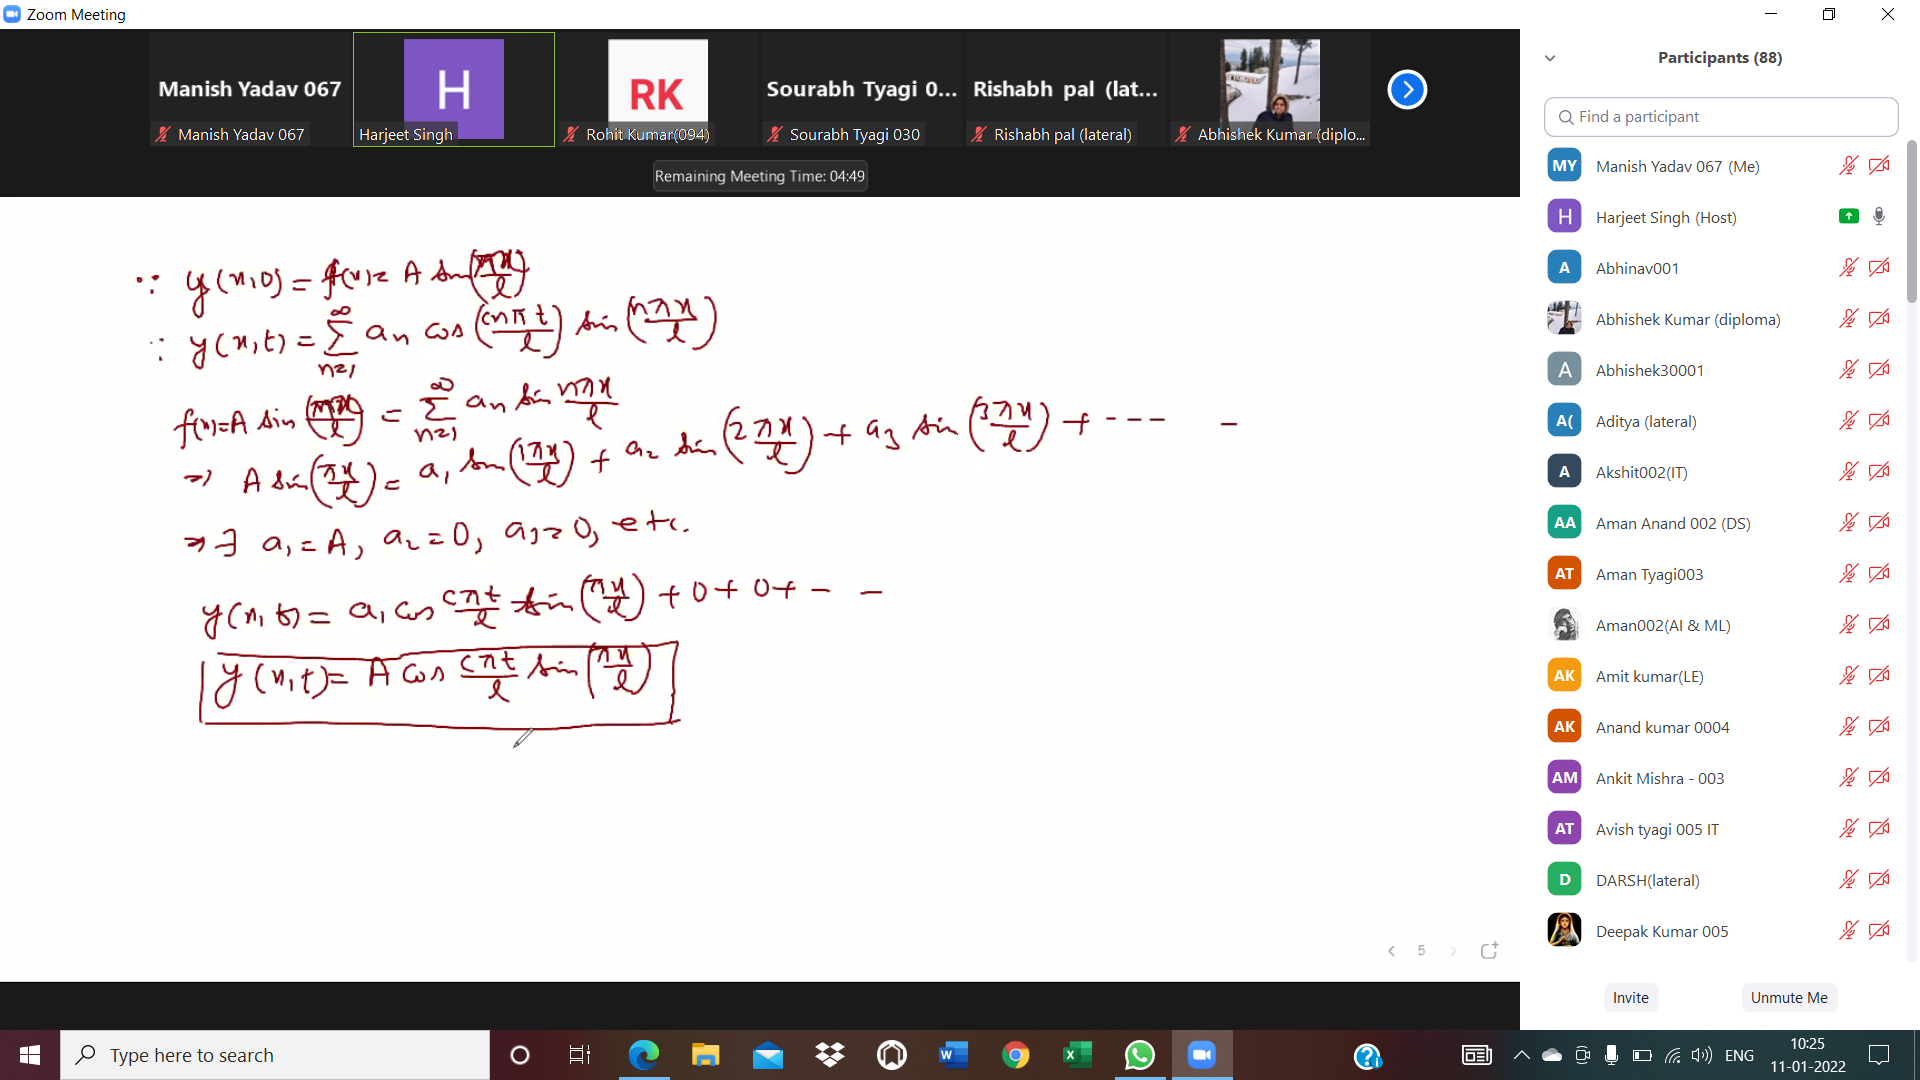 Zoom Meeting
Manish Yadav 067
H
RK
Sourabh Tyagi 0...
Rishabh pal (lat...
Manish Yadav 067
Harjeet Singh
Rohit Kumar(094)
Sourabh Tyagi 030
Rishabh pal (lateral)
Abhishek Kumar (diplo...
Remaining Meeting Time: 04:49
∵ y(x,0) = f(x) = A sin(πx/l)
∵ y(x,t) = ∑_{n=1}^{∞} an cos(cnπt/l) sin(nπx/l)
f(x)=A sin(πx/l) = ∑_{n=1}^{∞} an sin nπx/l
⇒ A sin(πx/l) = a1 sin(1πx/l) + a2 sin(2πx/l) + a3 sin(3πx/l) + --- -
⇒ ∃ a1 = A, a2 = 0, a3 = 0, etc.
y(x,t) = a1 cos cπt/l sin(πx/l) + 0 + 0 + - -
y(x,t) = A cos cπt/l sin(πx/l)
5
Participants (88)
Find a participant
MY Manish Yadav 067 (Me)
H Harjeet Singh (Host)
A Abhinav001
Abhishek Kumar (diploma)
A Abhishek30001
A( Aditya (lateral)
A Akshit002(IT)
AA Aman Anand 002 (DS)
AT Aman Tyagi003
Aman002(AI & ML)
AK Amit kumar(LE)
AK Anand kumar 0004
AM Ankit Mishra - 003
AT Avish tyagi 005 IT
D DARSH(lateral)
Deepak Kumar 005
Invite
Unmute Me
Type here to search
ENG
10:25
11-01-2022